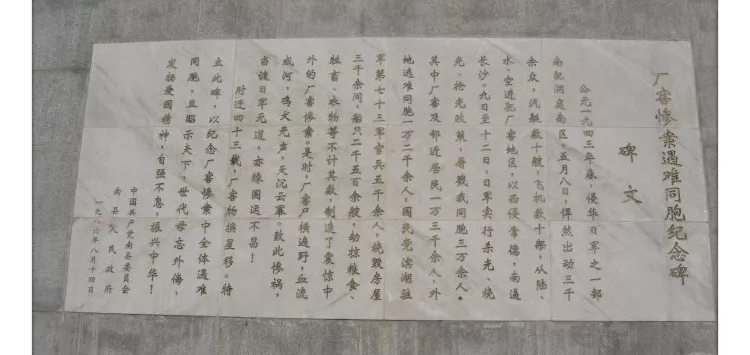 厂窖惨案遇难同胞纪念碑
碑文
公元一九四三年春,侵华日军之一部
南犯洞庭南区,五月八日,悍然出动三千
余众,汽艇数十艘,飞机数十架,从陆、
水、空进犯厂窖地区,以西侵常德,南逼
长沙。九日至十二日,日军实行杀光、烧
光、抢光政策,屠戮我同胞三万余人。
其中厂窖及邻近居民一万三千余人,外
地逃难同胞一万二千余人,国民党滨湖驻
军第七十三军官兵五千余人,烧毁房屋
三千余间,船只二千五百余艘,劫掠粮食、
牲畜、衣物等不计其数,制造了震惊中
外的厂窖惨案。是时,厂窖尸横遍野,血流
成河,鸡犬无声,天沉云罩。致此惨祸,
当谴日军无道,亦缘国运不昌!
时迁四十三载,厂窖物换星移。特
立此碑,以纪念厂窖惨案中全体遇难
同胞,且昭示天下,世代毋忘外侮,
发扬爱国精神,自强不息,振兴中华!
中国共产党南县委员会
南县人民政府
一九八六年八月十四日